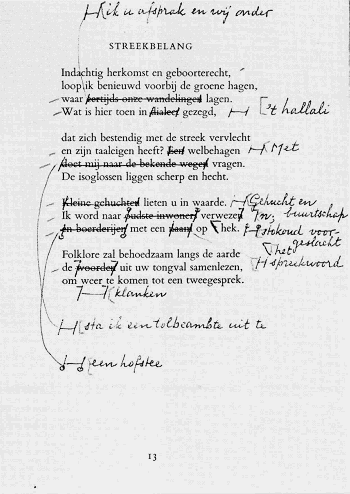 ik u afsprak en wij onder
STREEKBELANG
Indachtig herkomst en geboorterecht,
loop ik benieuwd voorbij de groene hagen,
waar eertijds onze wandelingen lagen.
Wat is hier toen in dialect gezegd, ['t hallali
dat zich bestendig met de streek vervlecht
en zijn taaleigen heeft? Een welbehagen Met
doet mij naar de bekende wegen vragen.
De isoglossen liggen scherp en hecht.
Kleine gehuchten lieten u in waarde. Gehucht en
Ik word naar oudste inwoners verwezen n; buurtschap
en boerderijen met een naam op 't hek. stokoud voor-
geslacht
Folklore zal behoedzaam langs de aarde het
de woorden uit uw tongval samenlezen, spreekwoord
om weer te komen tot een tweegesprek.
klanken
sta ik een tolbeambte uit te
een hofstee
13